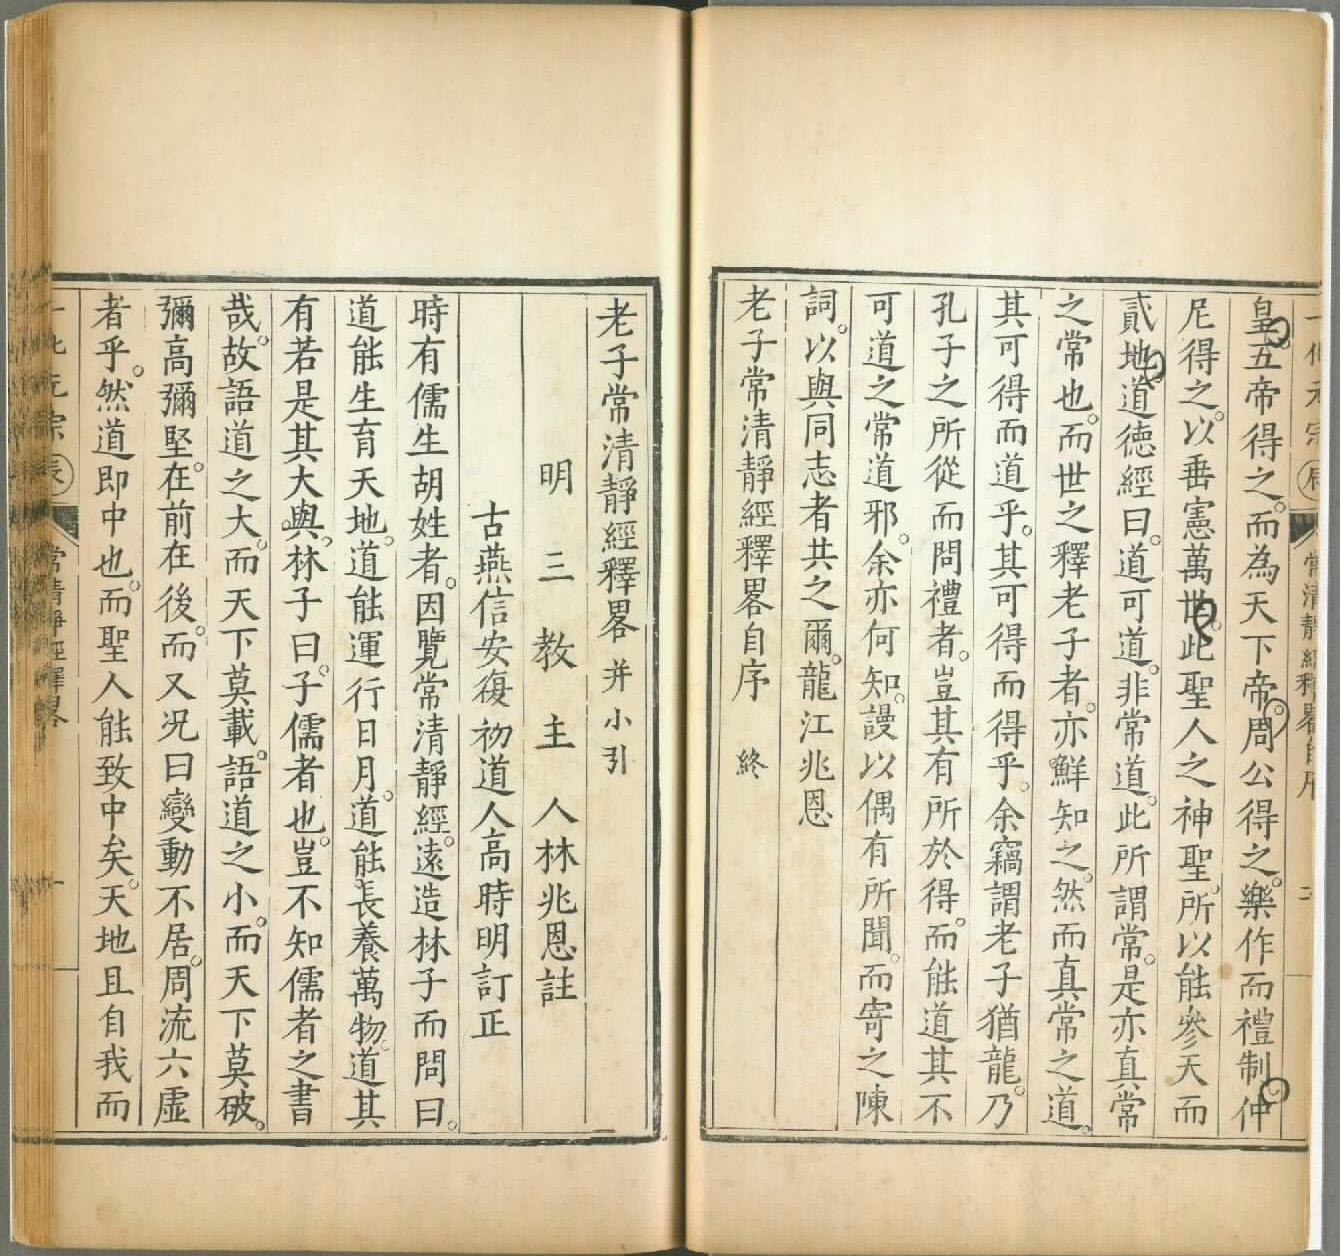 皇五帝得之。而為天下帝。周公得之。樂作而禮制。仲
尼得之。以垂憲萬世。此聖人之神聖。所以能參天而
貳地。道德經曰。道可道。非常道。此所謂常。是亦真常
之常也。而世之釋老子者。亦鮮知之。然而真常之道。
其可得而道乎。其可得而得乎。余竊謂老子猶龍。乃
孔子之所從而問禮者。豈其有所於得。而能道其不
可道之常道邪。余亦何知。謾以偶有所聞。而寄之陳
詞。以與同志者共之爾。龍江兆恩
老子常清靜經釋畧自序 終
老子常清靜經釋畧 并小引
明三教主人林兆恩註
古燕信安復初道人高時明訂正
時有儒生胡姓者。因覽常清靜經。遠造林子而問曰。
道能生育天地。道能運行日月。道能長養萬物。道其
有若是其大與。林子曰。子儒者也。豈不知儒者之書
哉。故語道之大。而天下莫載。語道之小。而天下莫破。
彌高彌堅。在前在後。而又況曰變動不居。周流六虛
者乎。然道即中也。而聖人能致中矣。天地且自我而
常清靜經釋畧 一